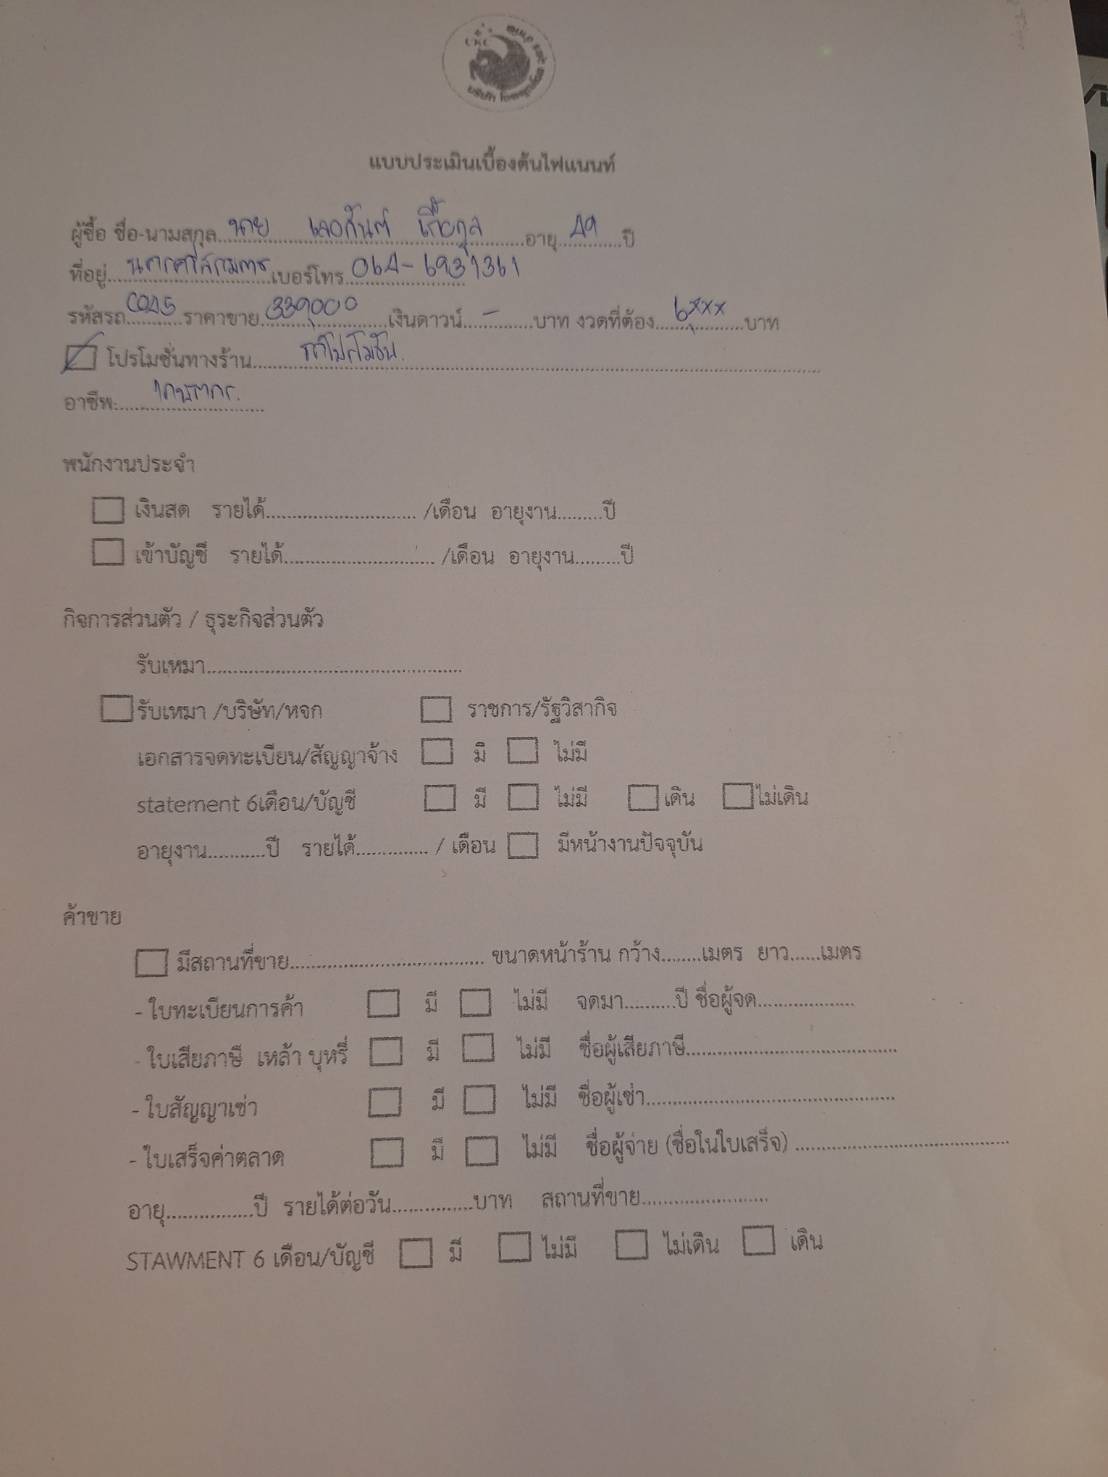 บริษัท
แบบประเมินเบื้องต้นไฟแนนท์
ผู้ซื้อ ชื่อ-นามสกุล นาย อายุ 49 ปี
ที่อยู่ เบอร์โทร 064-6931361
รหัสรถ C045 ราคาขาย 339,000 เงินดาวน์ - บาท งวดที่ต้อง 6,xxx บาท
โปรโมชั่นทางร้าน
อาชีพ: เกษตกร.
พนักงานประจำ
เงินสด รายได้ /เดือน อายุงาน ปี
เข้าบัญชี รายได้ /เดือน อายุงาน ปี
กิจการส่วนตัว / ธุระกิจส่วนตัว
รับเหมา
รับเหมา /บริษัท/หจก ราชการ/รัฐวิสากิจ
เอกสารจดทะเบียน/สัญญาจ้าง มี ไม่มี
statement 6เดือน/บัญชี มี ไม่มี เดิน ไม่เดิน
อายุงาน ปี รายได้ / เดือน มีหน้างานปัจจุบัน
ค้าขาย
มีสถานที่ขาย ขนาดหน้าร้าน กว้าง เมตร ยาว เมตร
- ใบทะเบียนการค้า มี ไม่มี จดมา ปี ชื่อผู้จด
- ใบเสียภาษี เหล้า บุหรี่ มี ไม่มี ชื่อผู้เสียภาษี
- ใบสัญญาเช่า มี ไม่มี ชื่อผู้เช่า
- ใบเสร็จค่าตลาด มี ไม่มี ชื่อผู้จ่าย (ชื่อในใบเสร็จ)
อายุ ปี รายได้ต่อวัน บาท สถานที่ขาย
STAWMENT 6 เดือน/บัญชี มี ไม่มี ไม่เดิน เดิน